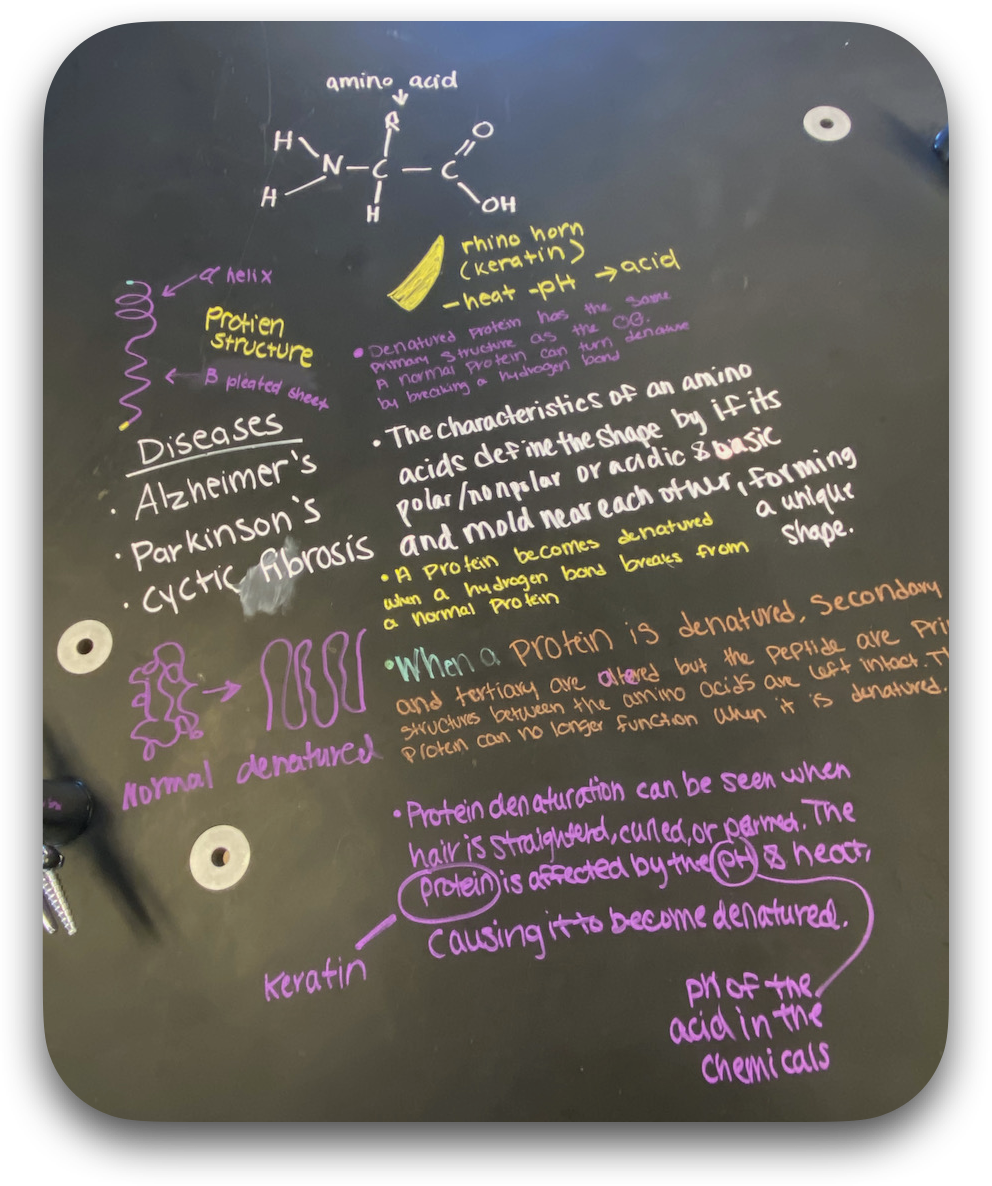 amino acid
R
H
O
N — C — C
H
H
OH
rhino horn
(keratin)
- heat - pH → acid
α helix
Protien
structure
β pleated sheet
• Denatured protein has the same
primary structure as the
A normal protein can turn denature
by breaking a hydrogen bond
Diseases
• Alzheimer's
• Parkinson's
• cyctic fibrosis
• The characteristics of an amino
acids define the shape by if its
polar/nonpolar or acidic & basic
and mold near each other, forming
a unique
shape.
• A Protein becomes denatured
when a hydrogen bond breaks from
a normal Protein
• When a Protein is denatured, Secondary
and tertiary are altered but the peptide are Pri
structures between the amino acids are left intact. Th
Protein can no longer function when it is denatured.
Normal denatured
• Protein denaturation can be seen when
hair is straighterd, curled, or permed. The
protein is affected by the pH & heat,
causing it to become denatured.
Keratin
pH of the
acid in the
chemicals